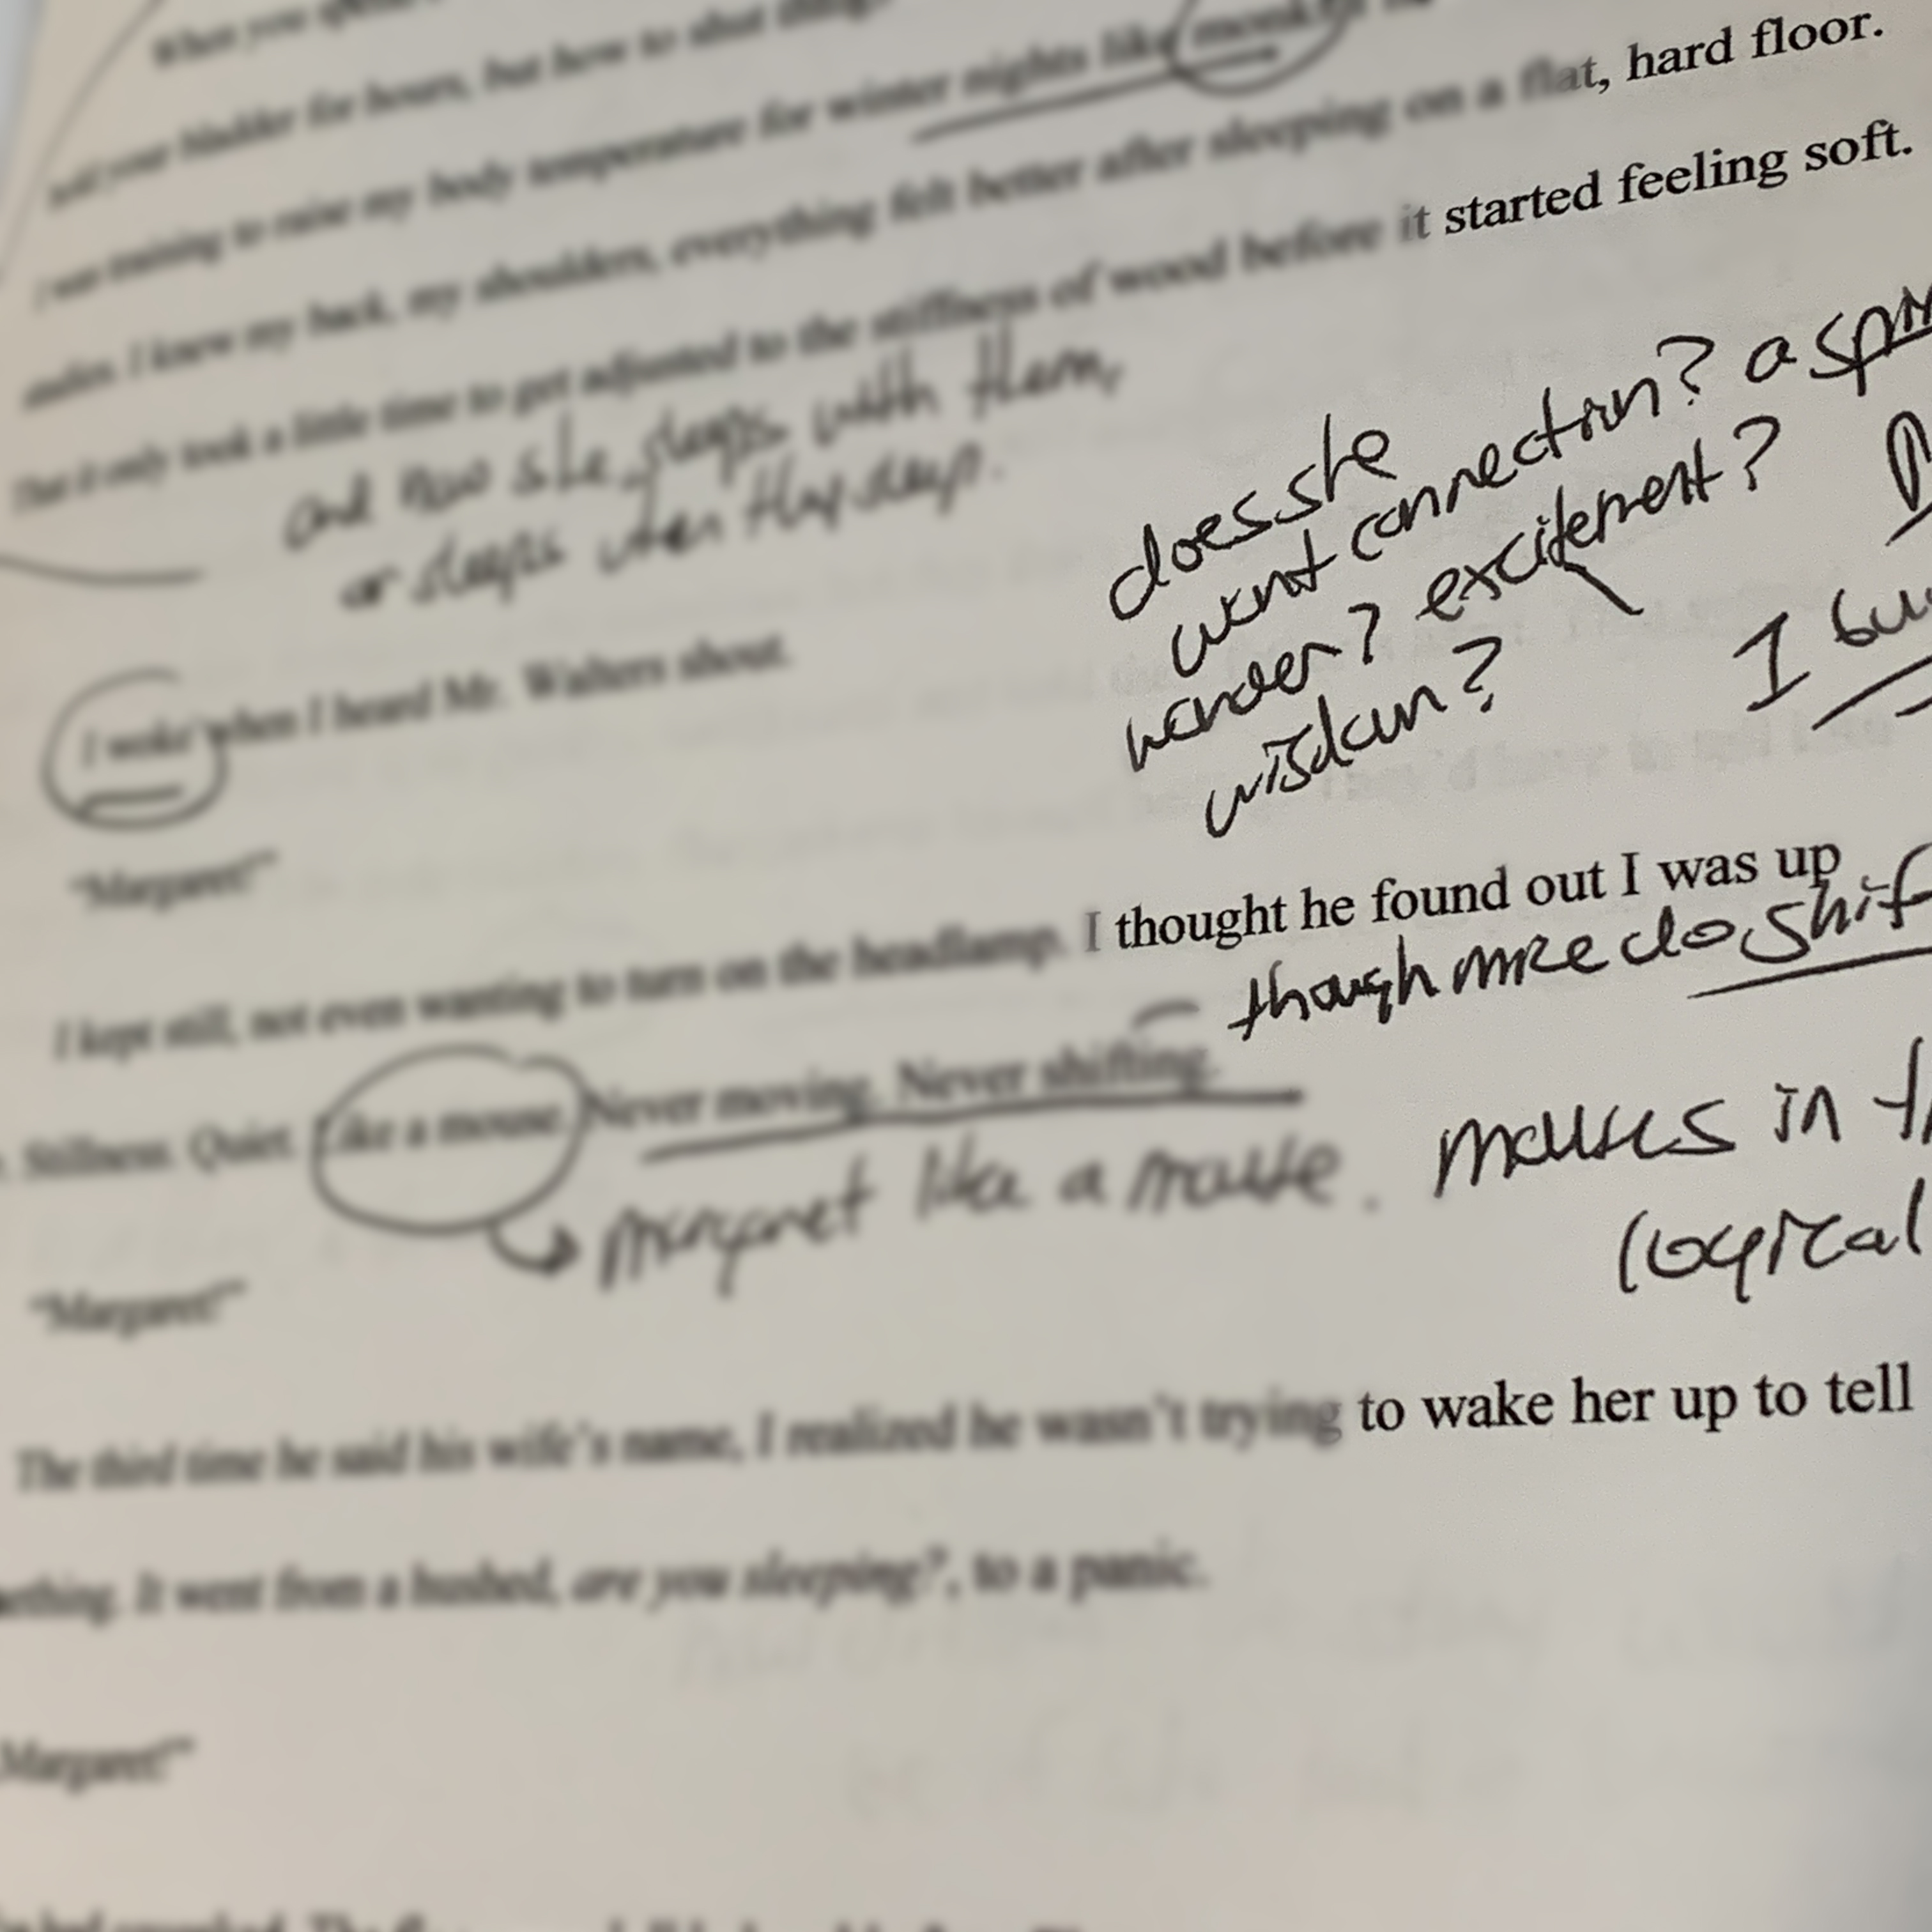 When you
your bladder for hours, but how to shut
I was training to raise my body temperature for winter nights like
studies. I knew my back, my shoulders, everything felt better after sleeping on a flat, hard floor.
That it only took a little time to get adjusted to the stiffness of wood before it started feeling soft.
and now she sleeps with them,
or sleeps when they sleep.
does she
want connection? a
wonder? excitement?
wisdom?
I
I woke when I heard Mr. Walters shout.
"Margaret!"
I kept still, not even wanting to turn on the headlamp. I thought he found out I was up
though mice do shift
Stillness. Quiet. Like a mouse. Never moving. Never shifting.
Margaret like a mouse.
in
logical
"Margaret!"
The third time he said his wife's name, I realized he wasn't trying to wake her up to tell
It went from a hushed, are you sleeping?, to a panic.
Margaret!"